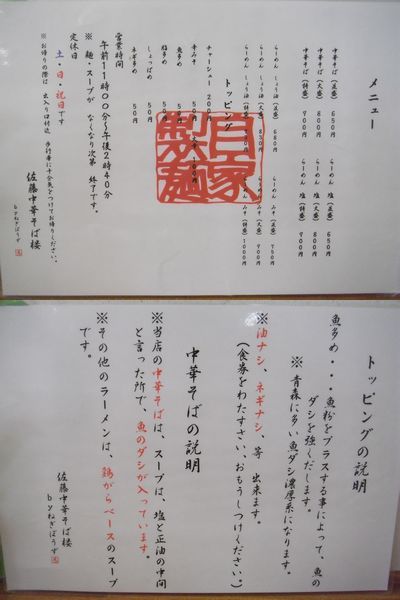 メニュー
中華そば（正盛）650円
中華そば（大盛）800円
中華そば（特盛）900円
らーめん 塩（正盛）650円
らーめん 塩（大盛）800円
らーめん 塩（特盛）900円
らーめん しょう油（正盛）680円
らーめん しょう油（大盛）830円
らーめん しょう油（特盛）
らーめん みそ（正盛）750円
らーめん みそ（大盛）900円
らーめん みそ（特盛）1000円
自家製麺
トッピング
チャーシュー 200円
辛みそ 50円
魚多め 50円
脂多め 50円
しょっぱめ 50円
ネギ多め 50円
営業時間
午前11時00分～午後2時40分
※ 麺・スープが なくなり次第 終了です。
定休日
土・日・祝日です
※ お帰りの際は 出入り口付近 歩行者に十分気をつけてお帰りください。
佐藤中華そば楼
byねぎぼうず
トッピングの説明
魚多め・・・魚粉をプラスする事によって、魚の
ダシを強くだします。
※ 青森に多い魚ダシ濃厚系になります。
※油ナシ、ネギナシ、等 出来ます。
（食券をわたすさい、おもうしつけください。）
中華そばの説明
※当店の中華そばは、スープは、塩と正油の中間
と言った所で、魚のダシが入っています。
※その他のラーメンは、鶏がらベースのスープ
です。
佐藤中華そば楼
byねぎぼうず